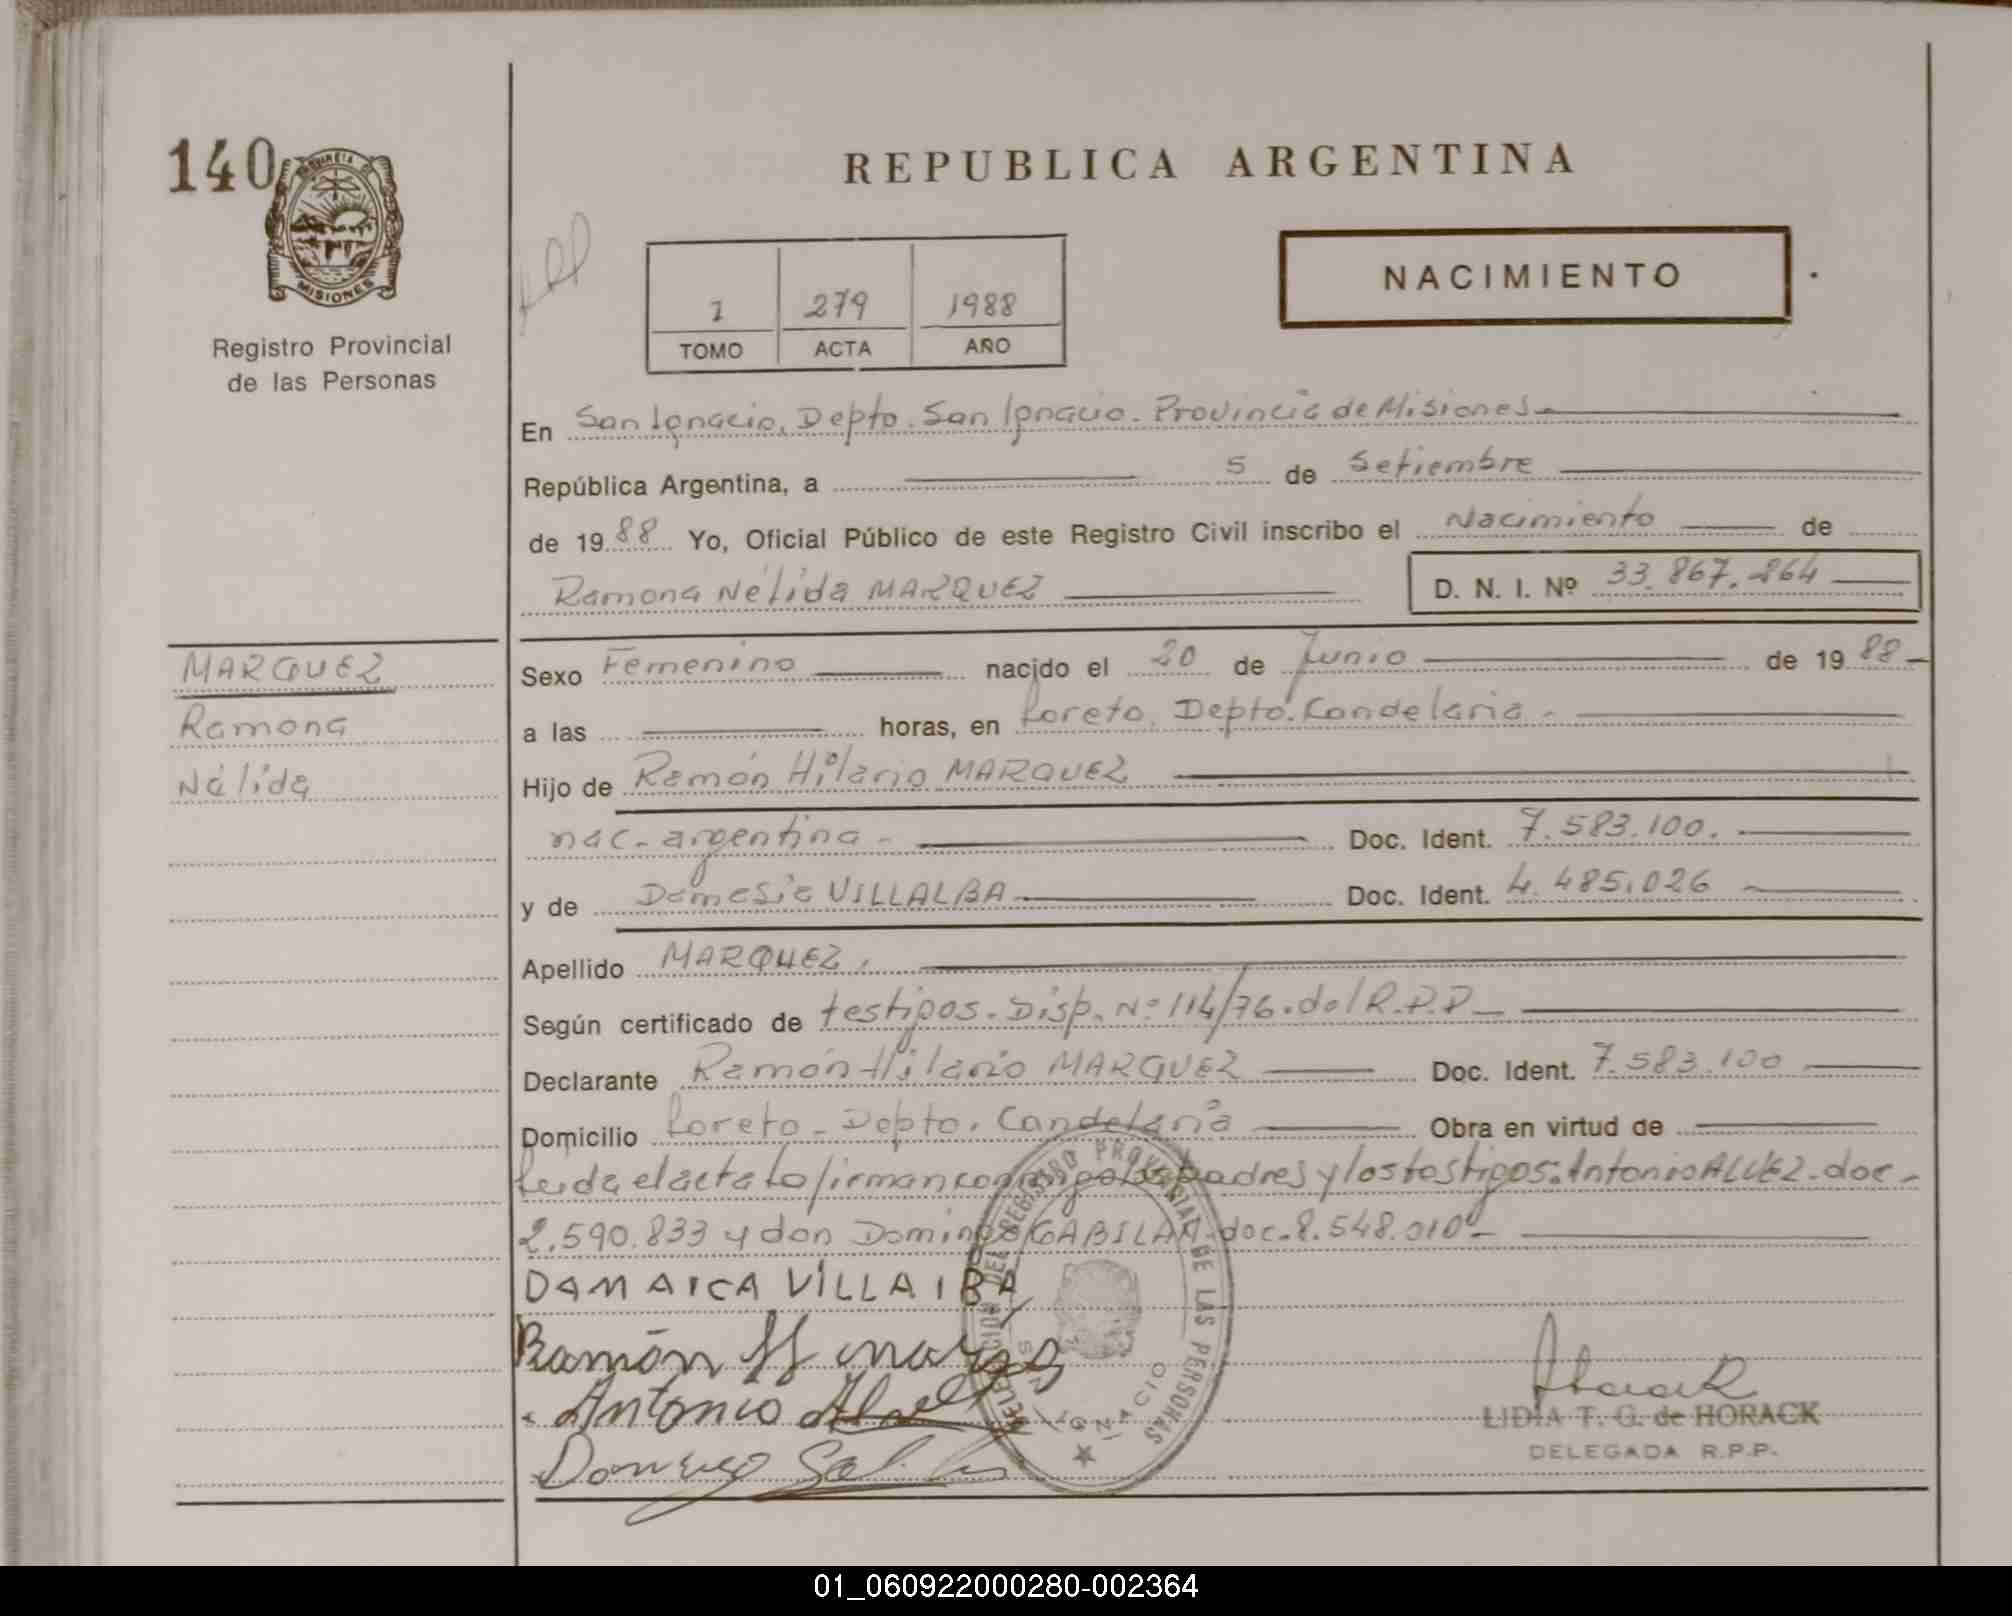 140
PROVINCIA DE
MISIONES
Registro Provincial
de las Personas
REPUBLICA ARGENTINA
NACIMIENTO
1 279 1988
TOMO ACTA AÑO
En San Ignacio, Depto. San Ignacio. Provincia de Misiones
República Argentina, a 5 de Setiembre
de 1988 Yo, Oficial Público de este Registro Civil inscribo el Nacimiento de
Ramona Nélida MARQUEZ D. N. I. Nº 33.867.264
MARQUEZ
Ramona
Nélida
Sexo Femenino nacido el 20 de Junio de 1988
a las horas, en Loreto. Depto. Candelaria
Hijo de Ramón Hilario MARQUEZ
nac. argentina - Doc. Ident. 7.583.100.
y de Damesia VILLALBA Doc. Ident. 4.485.026
Apellido MARQUEZ.
Según certificado de testigos. Disp. Nº 114/76. del R.P.P
Declarante Ramón Hilario MARQUEZ Doc. Ident. 7.583.100
Domicilio Loreto - Depto. Candelaria Obra en virtud de
Leida el acta la firman conmigo los padres y los testigos: Antonio ALVEZ. doc.
2.590.833 y don Domingo GABILAN doc. 8.548.010
DAMAICA VILLAIBA
Ramón H marques
Antonio Alvez
Domingo
DELEGACION DEL REGISTRO PROVINCIAL DE LAS PERSONAS
SAN IGNACIO
LIDIA T. G. de HORACK
DELEGADA R.P.P.
01_060922000280-002364